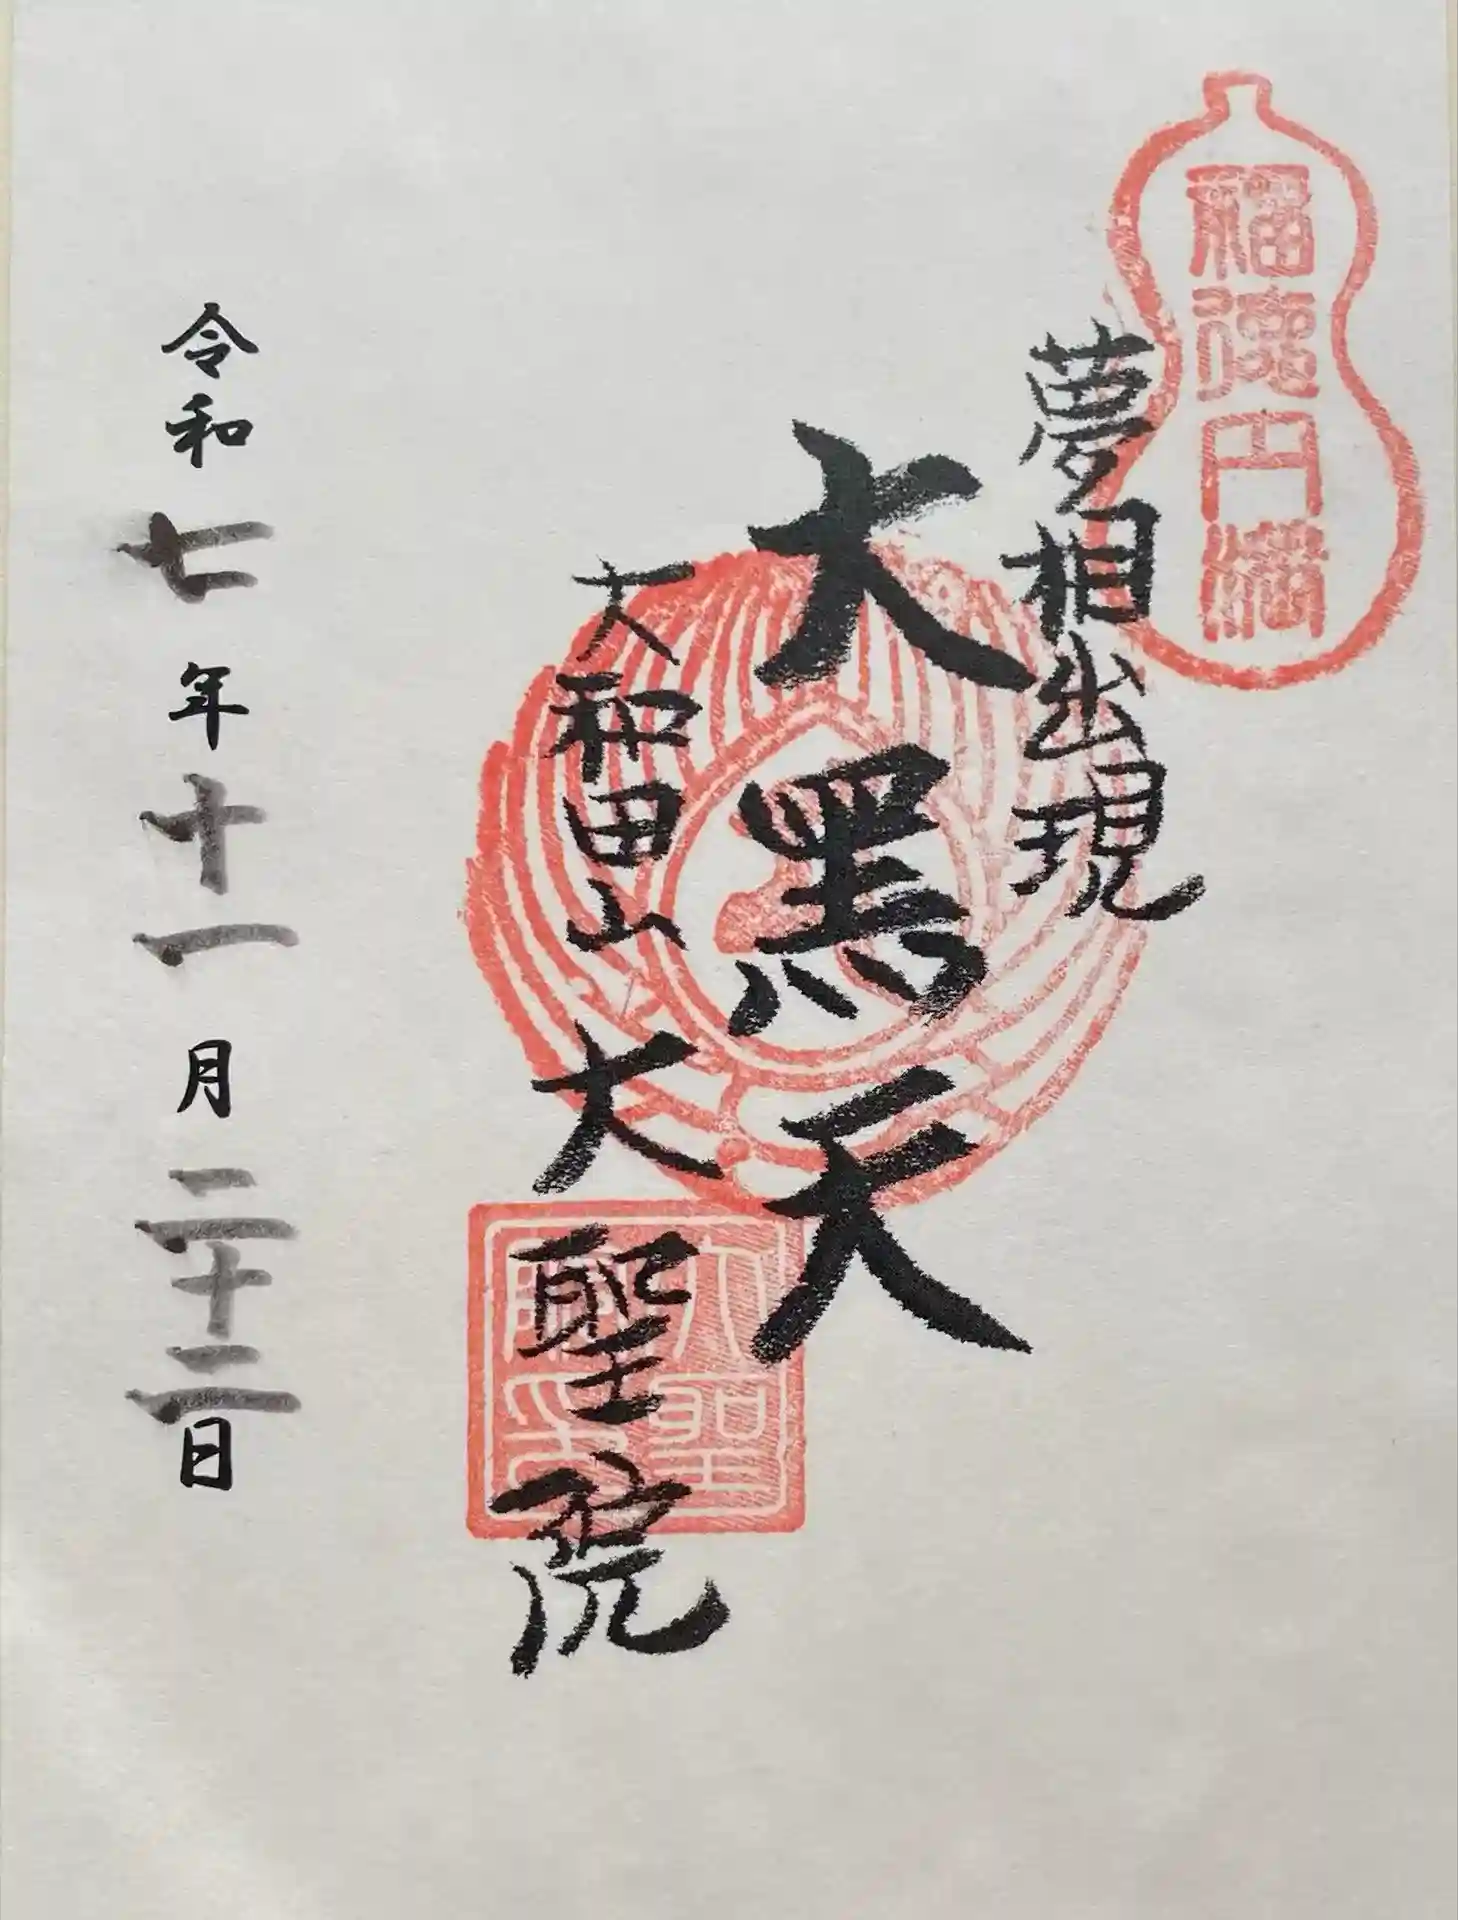 福徳円満
夢相出現
大黑天
大和田山 大聖院
大聖
院印
令和七年十一月二十二日